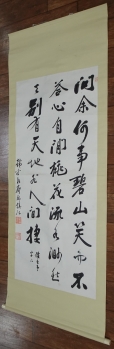 问余何事碧山笑而不
答心自闲桃花流水渺然
去别有天地非人间捿